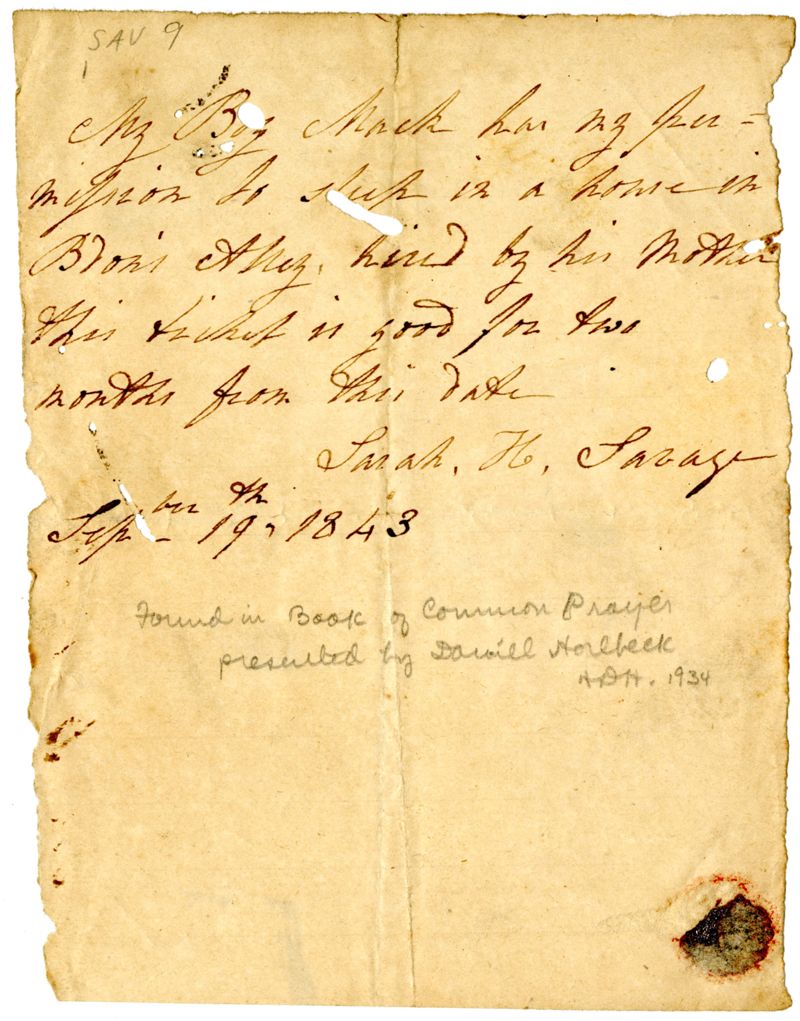 SAV 9
1
My Boy Mack has my per-
mission to sleep in a house in
Alley, hired by his Mother
this ticket is good for two
months from this date
Sarah. H. Savage
Sepber 19th 1843
Found in Book of Common Prayer
presented by Daniell Horlbeck
HDH. 1934